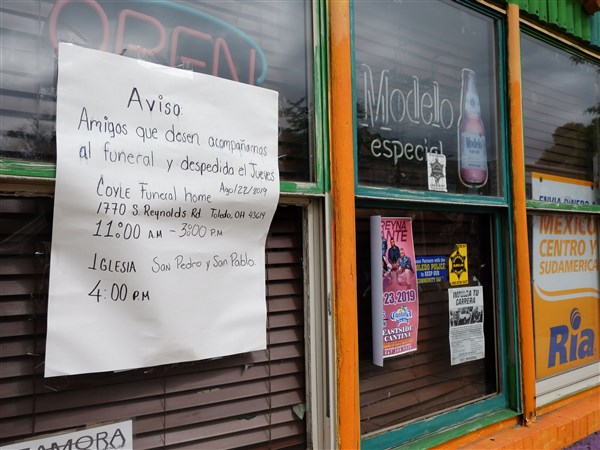 OPEN
Aviso:
Amigos que desen acompañarnos
al funeral y despedida el Jueves
Ago/22/2019
Coyle Funeral home
1770 S. Reynolds Rd. Toledo, OH 43614
11:00 AM - 3:00 PM
Iglesia San Pedro y San Pablo
4:00 PM
AMORA
Modelo
especial
REYNA
ANTE
23, 2019
EASTSIDE
CANTINA
TOLEDO POLICE
CARRERA
ENVIA DINERO
MEXICO
CENTRO Y
SUDAMERICA
Ria